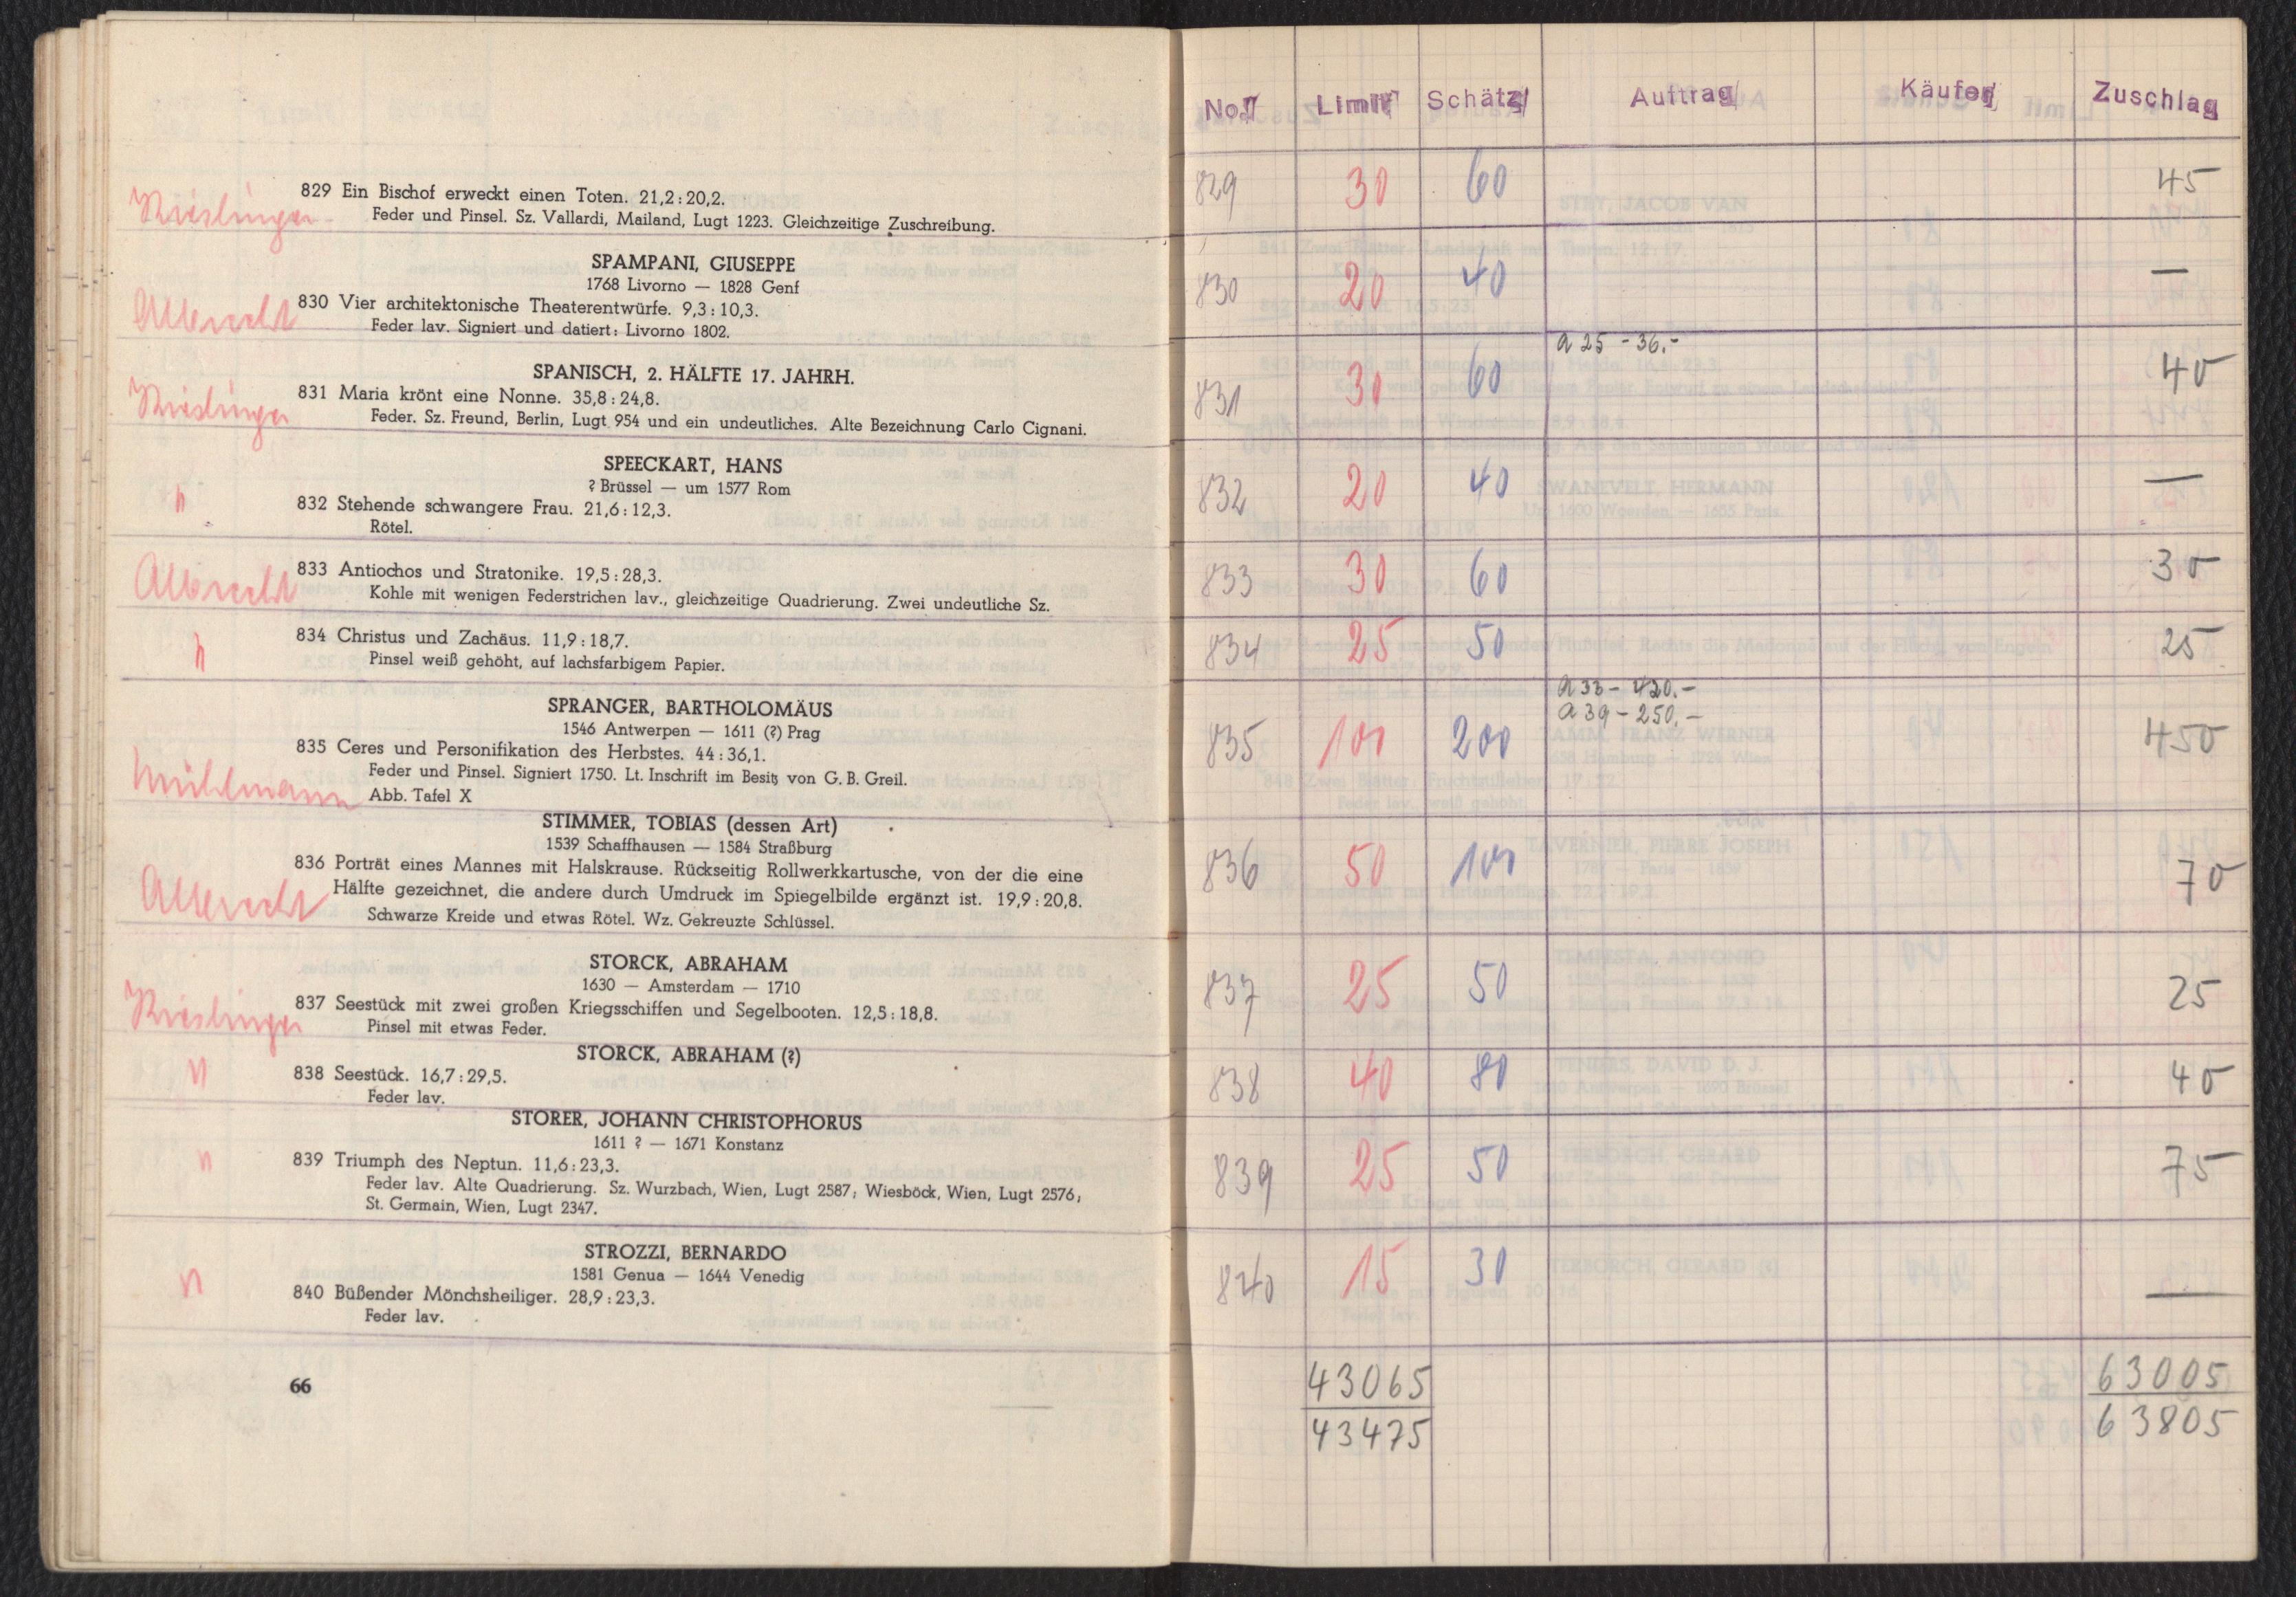 829 Ein Bischof erweckt einen Toten. 21,2 : 20,2.
Feder und Pinsel. Sz. Vallardi, Mailand, Lugt 1223. Gleichzeitige Zuschreibung.
SPAMPANI, GIUSEPPE
1768 Livorno — 1828 Genf
Albrecht
830 Vier architektonische Theaterentwürfe. 9,3 : 10,3.
Feder lav. Signiert und datiert: Livorno 1802.
SPANISCH, 2. HÄLFTE 17. JAHRH.
831 Maria krönt eine Nonne. 35,8 : 24,8.
Feder. Sz. Freund, Berlin, Lugt 954 und ein undeutliches. Alte Bezeichnung Carlo Cignani.
SPEECKART, HANS
? Brüssel — um 1577 Rom
832 Stehende schwangere Frau. 21,6 : 12,3.
Rötel.
Albrecht
833 Antiochos und Stratonike. 19,5 : 28,3.
Kohle mit wenigen Federstrichen lav., gleichzeitige Quadrierung. Zwei undeutliche Sz.
834 Christus und Zachäus. 11,9 : 18,7.
Pinsel weiß gehöht, auf lachsfarbigem Papier.
SPRANGER, BARTHOLOMÄUS
1546 Antwerpen — 1611 (?) Prag
835 Ceres und Personifikation des Herbstes. 44 : 36,1.
Feder und Pinsel. Signiert 1750. Lt. Inschrift im Besitz von G. B. Greil.
Mühlmann
Abb. Tafel X
STIMMER, TOBIAS (dessen Art)
1539 Schaffhausen — 1584 Straßburg
836 Porträt eines Mannes mit Halskrause. Rückseitig Rollwerkkartusche, von der die eine
Albrecht
Hälfte gezeichnet, die andere durch Umdruck im Spiegelbilde ergänzt ist. 19,9 : 20,8.
Schwarze Kreide und etwas Rötel. Wz. Gekreuzte Schlüssel.
STORCK, ABRAHAM
1630 — Amsterdam — 1710
837 Seestück mit zwei großen Kriegsschiffen und Segelbooten. 12,5 : 18,8.
Pinsel mit etwas Feder.
STORCK, ABRAHAM (?)
838 Seestück. 16,7 : 29,5.
Feder lav.
STORER, JOHANN CHRISTOPHORUS
1611 ? — 1671 Konstanz
839 Triumph des Neptun. 11,6 : 23,3.
Feder lav. Alte Quadrierung. Sz. Wurzbach, Wien, Lugt 2587; Wiesböck, Wien, Lugt 2576;
St. Germain, Wien, Lugt 2347.
STROZZI, BERNARDO
1581 Genua — 1644 Venedig
840 Büßender Mönchsheiliger. 28,9 : 23,3.
Feder lav.
66
No. Limit Schätz Auftrag Käufer Zuschlag
829 30 60 45
830 20 40 —
a 25 - 36.-
831 30 60 40
832 20 40 —
833 30 60 30
834 25 50 25
a 33 - 420.-
a 39 - 250.-
835 100 200 450
836 50 100 70
837 25 50 25
838 40 80 40
839 25 50 75
840 15 30 —
43065 63005
43475 63805